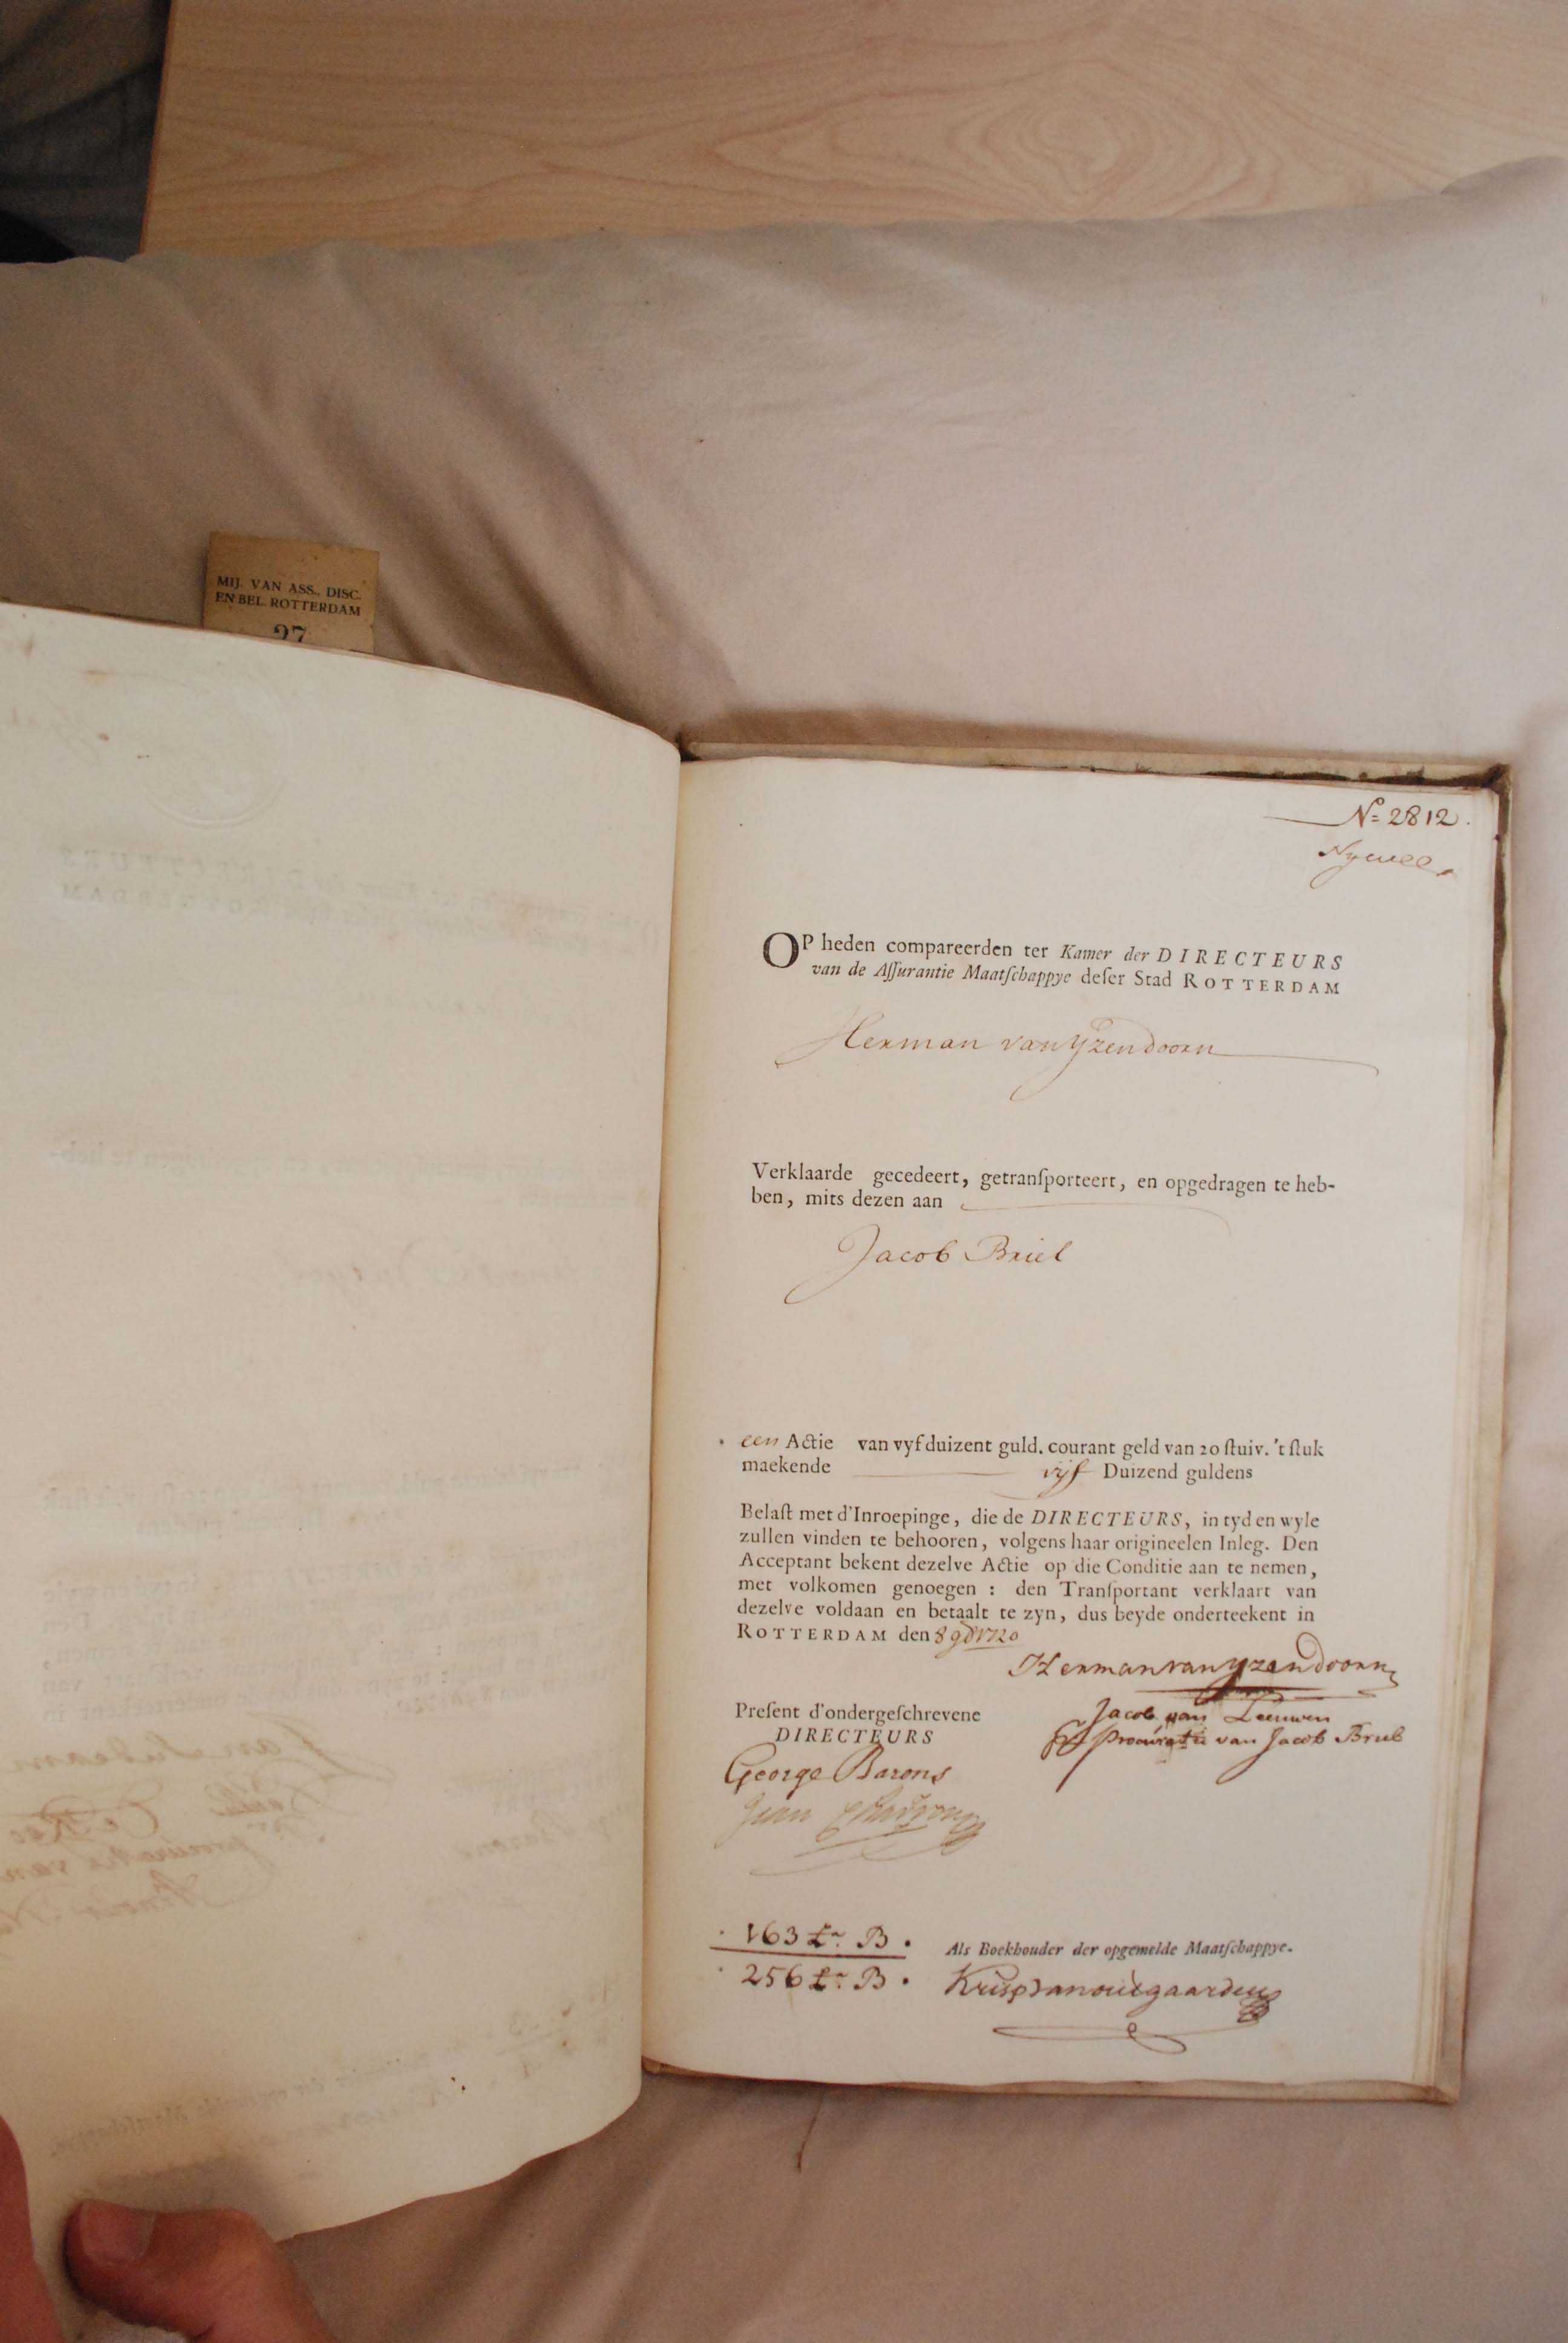 MIJ. VAN ASS., DISC.
EN BEL. ROTTERDAM
27
No 2812.
OP heden compareerden ter Kamer der DIRECTEURS
van de Aſſurantie Maatſchappye deſer Stad ROTTERDAM
Herman van Yzendoorn
Verklaarde gecedeert, getranſporteert, en opgedragen te heb-
ben, mits dezen aan
Jacob Briel
een Actie van vyf duizent guld. courant geld van 20 ſtuiv. 't ſtuk
maekende vijf Duizend guldens
Belaſt met d'Inroepinge, die de DIRECTEURS, in tyd en wyle
zullen vinden te behooren, volgens haar origineelen Inleg. Den
Acceptant bekent dezelve Actie op die Conditie aan te nemen,
met volkomen genoegen : den Tranſportant verklaart van
dezelve voldaan en betaalt te zyn, dus beyde onderteekent in
ROTTERDAM den 8 9br 1720
Herman van Yzendoorn
Preſent d'ondergeſchrevene
DIRECTEURS
Jacob van Leeuwen
procuratie van Jacob Briel
George Barons
163 Lr B.
256 Lr B.
Als Boekhouder der opgemelde Maatſchappye.